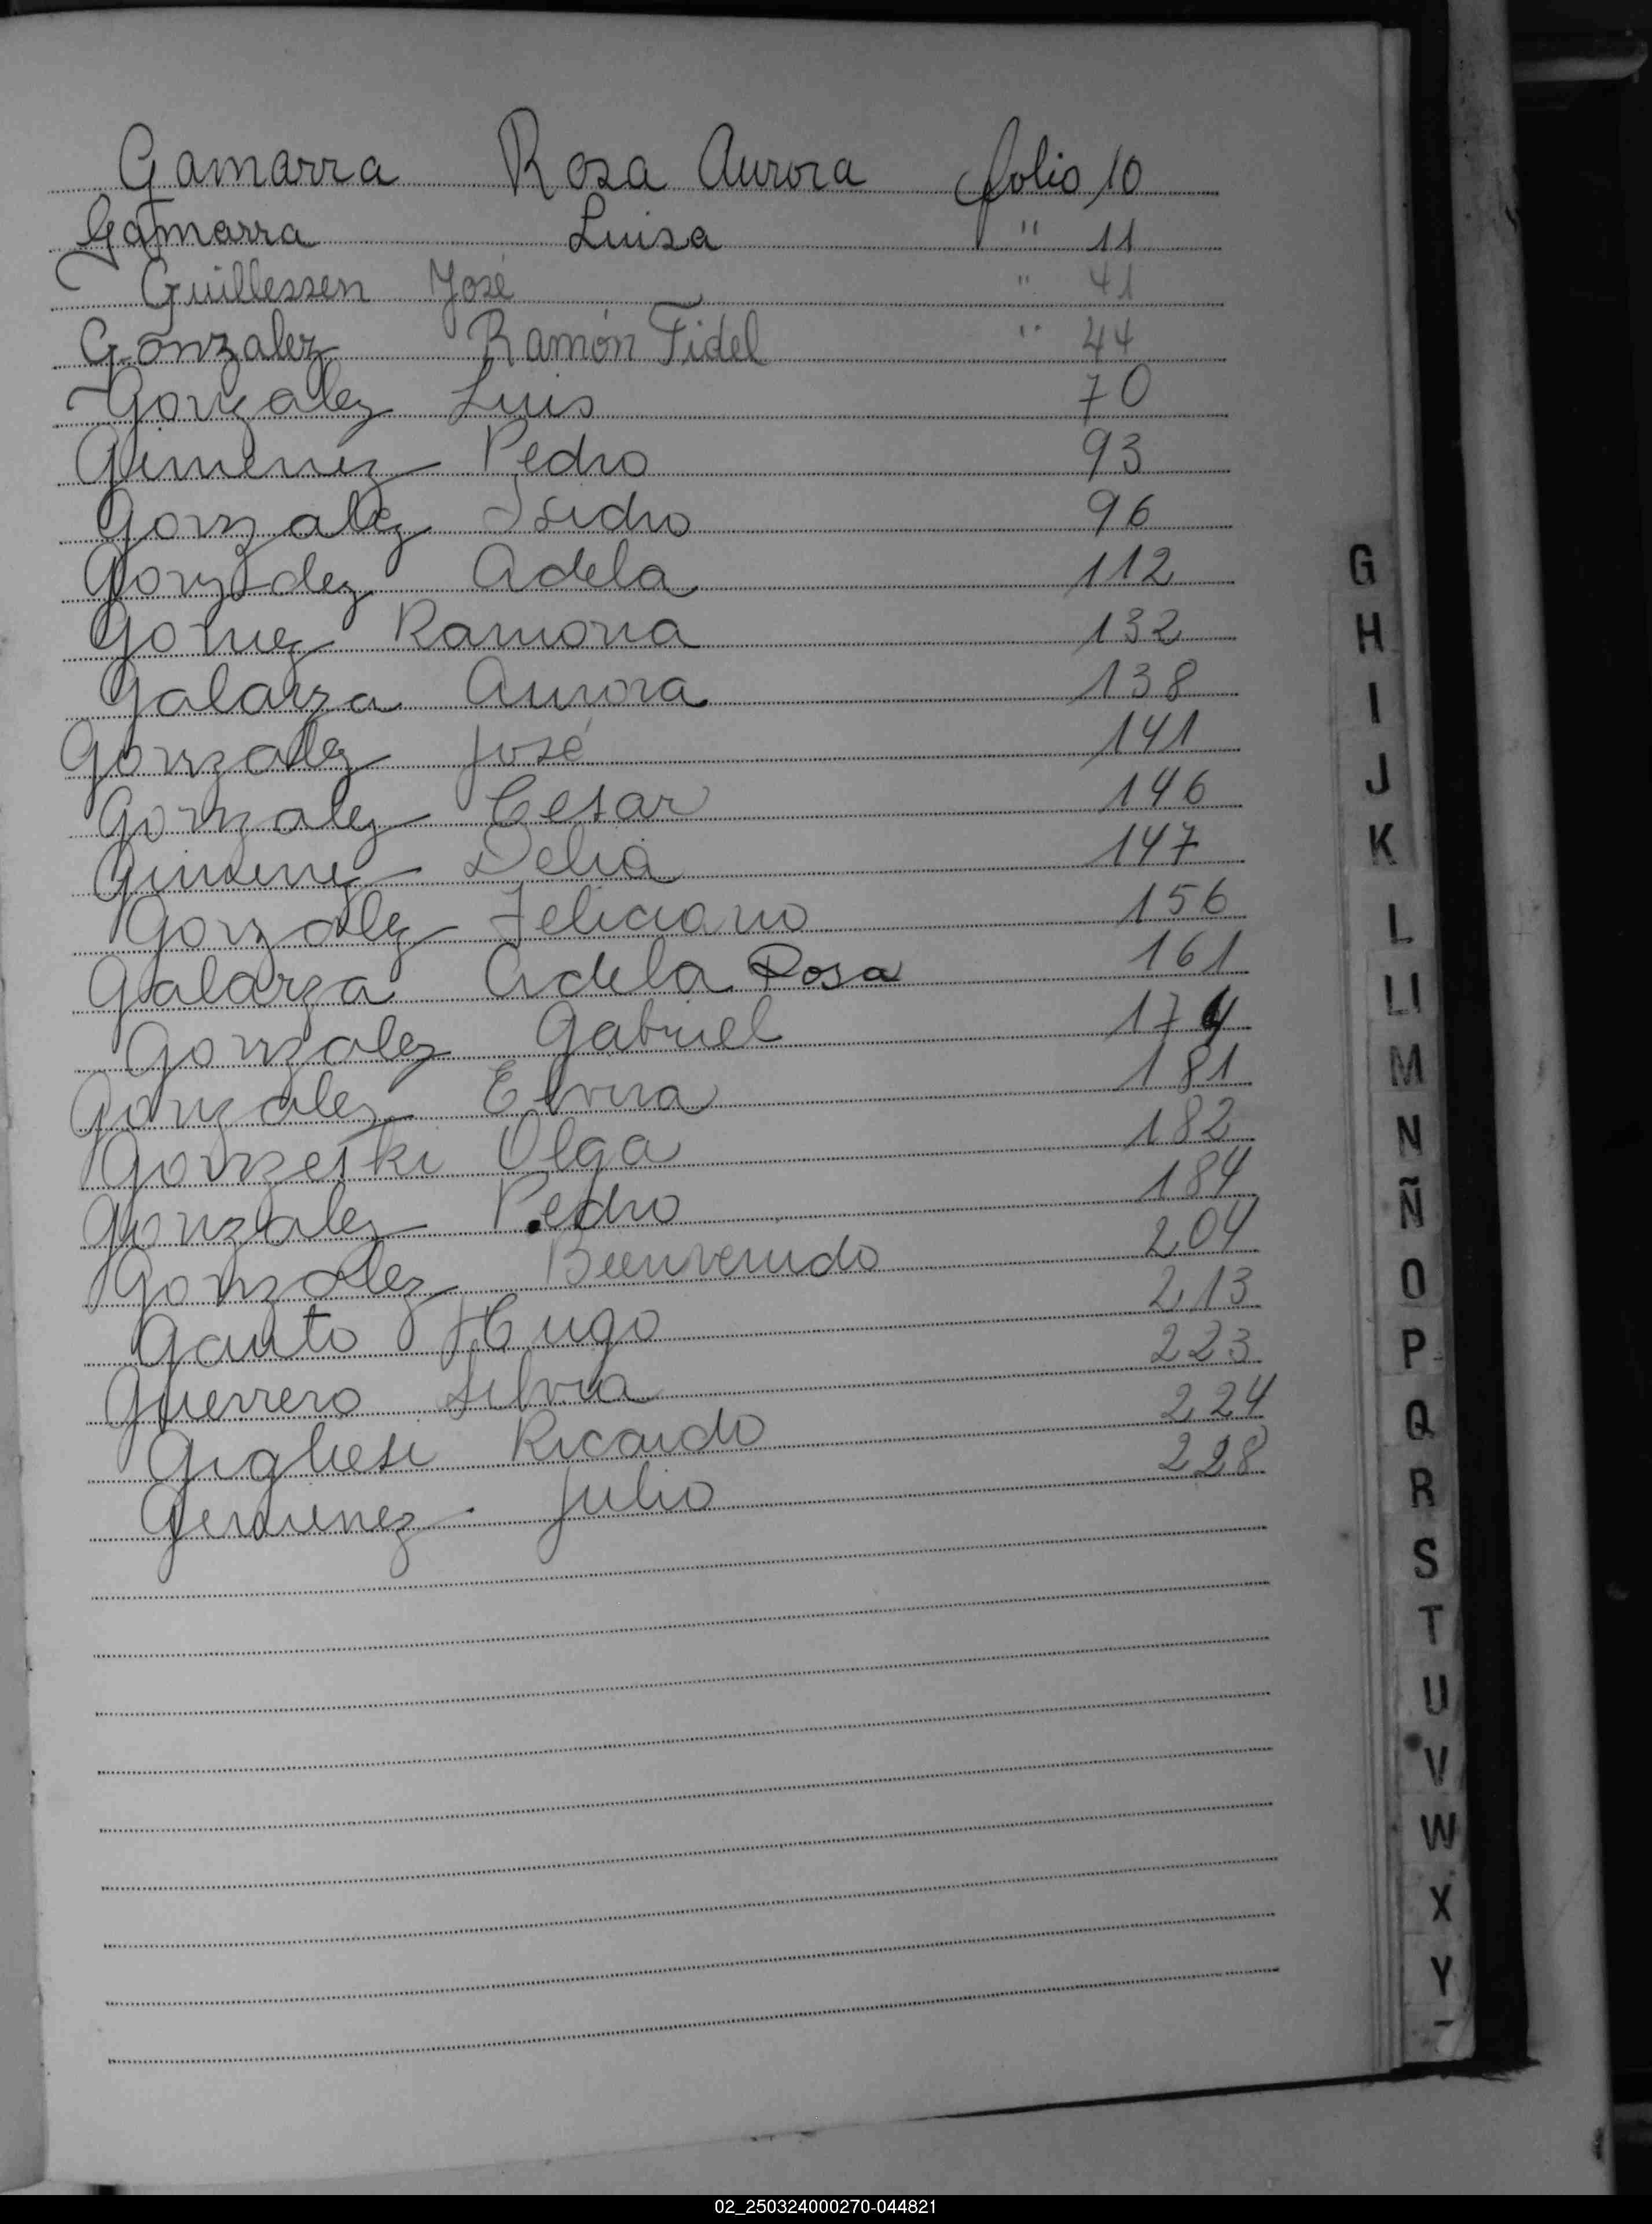 Gamarra Rosa Aurora folio 10
Gamarra Luisa " 11
Guillessen José " 41
Gonzalez Ramón Fidel " 44
Gonzalez Luis 70
Gimenez Pedro 93
Gonzalez Isidro 96
Gonzalez Adela 112
Gomez Ramona 132
Galarza Aurora 138
Gonzalez José 141
Gonzalez Cesar 146
Gimenez Delia 147
Gonzalez Feliciano 156
Galarza Adela Rosa 161
Gonzalez Gabriel 174
Gonzalez Elvira 181
Gorzeski Olga 182
Gonzalez Pedro 184
Gonzalez Bienvenido 204
Gauto Hugo 213
Guerrero Silvia 223
Gigliesi Ricardo 224
Gimenez Julio 228
G
H
I
J
K
L
Ll
M
N
Ñ
O
P
Q
R
S
T
U
V
W
X
Y
02_250324000270-044821